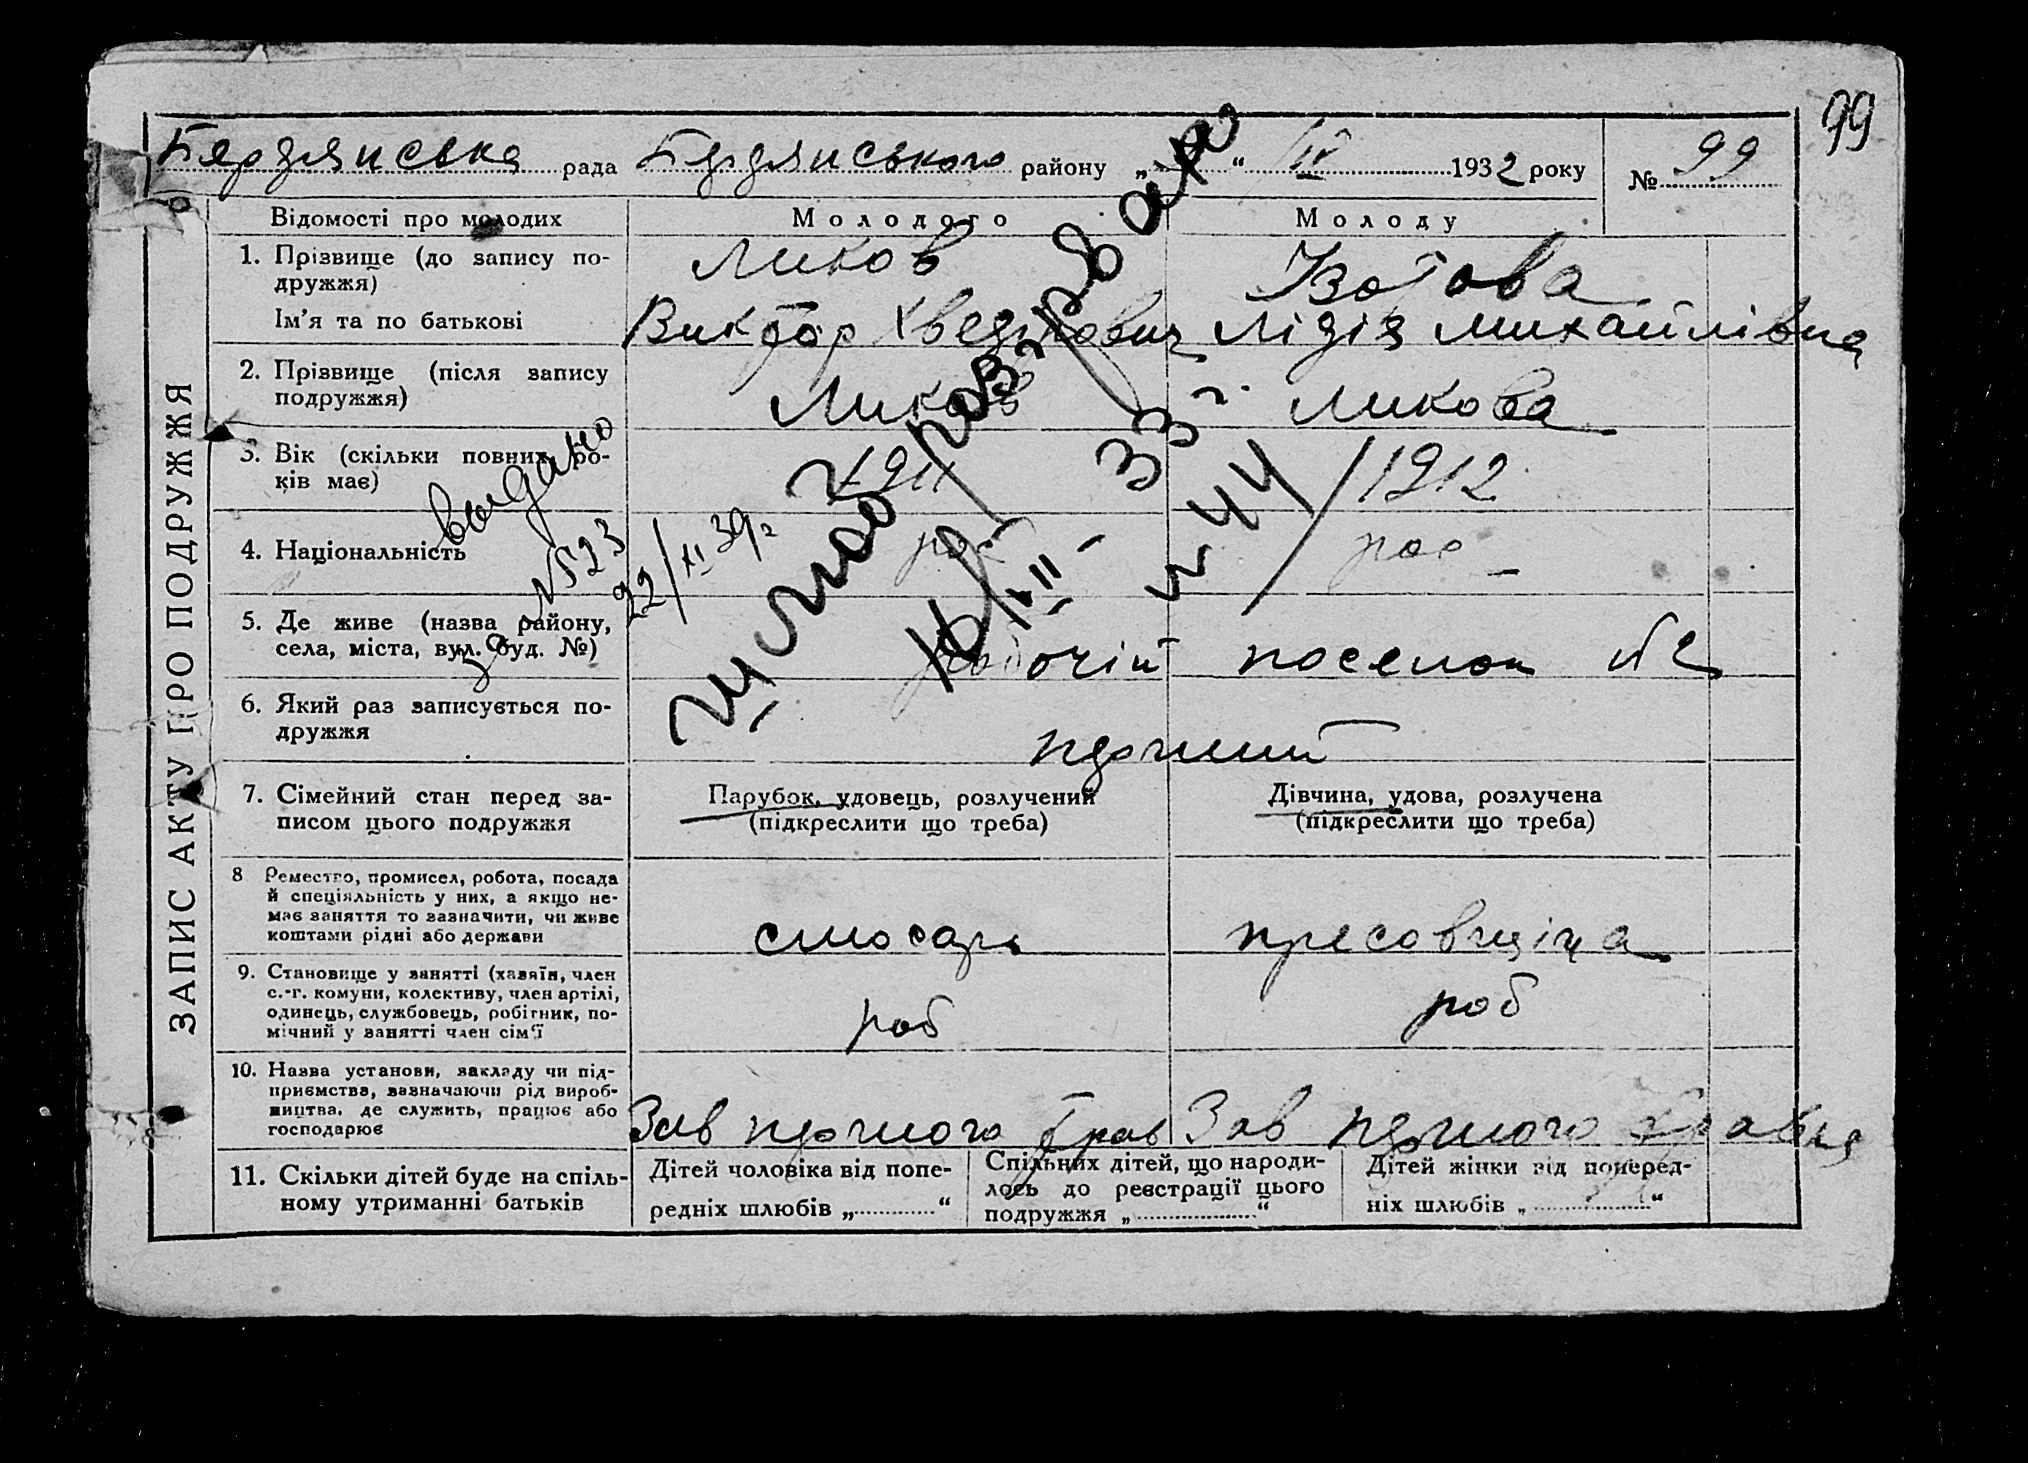 99
Бердянська рада Бердянського району „ “ IV 1932 року № 99
ЗАПИС АКТУ ПРО ПОДРУЖЖЯ
Відомості про молодих
Молодого
Молоду
1. Прізвище (до запису по-
дружжя)
Ликов
Ізотова
Ім’я та по батькові
Виктор Хведорович
Лідія Михайлівна
2. Прізвище (після запису
подружжя)
Ликов
Ликова
3. Вік (скільки повних ро-
ків має)
1911
1912
4. Національність
рос
рос
5. Де живе (назва району,
села, міста, вул. буд. №)
рабочій поселок №2
6. Який раз записується по-
дружжя
перший
7. Сімейний стан перед за-
писом цього подружжя
Парубок, удовець, розлучений
(підкреслити що треба)
Дівчина, удова, розлучена
(підкреслити що треба)
8 Ремество, промисел, робота, посада
й спеціяльність у них, а якщо не-
має заняття то зазначити, чи живе
коштами рідні або держави
слюсарь
пресовщіца
9. Становище у занятті (хазяїн, член
с.-г. комуни, колективу, член артілі,
одинець, службовець, робітник, по-
мічний у занятті член сім’ї
роб
роб
10. Назва установи, закладу чи під-
приємства, зазначаючи рід вироб-
ництва, де служить, працює або
господарює
Зав першого трав
Зав першого травня
11. Скільки дітей буде на спіль-
ному утриманні батьків
Дітей чоловіка від попе-
редніх шлюбів „ “
Спільних дітей, що народи-
лось до реєстрації цього
подружжя „ “
Дітей жінки від поперед-
ніх шлюбів „ “
выдано
за №523
22/XI 39г
шлюб розірвано
16/VII - 33 г.
№ 44